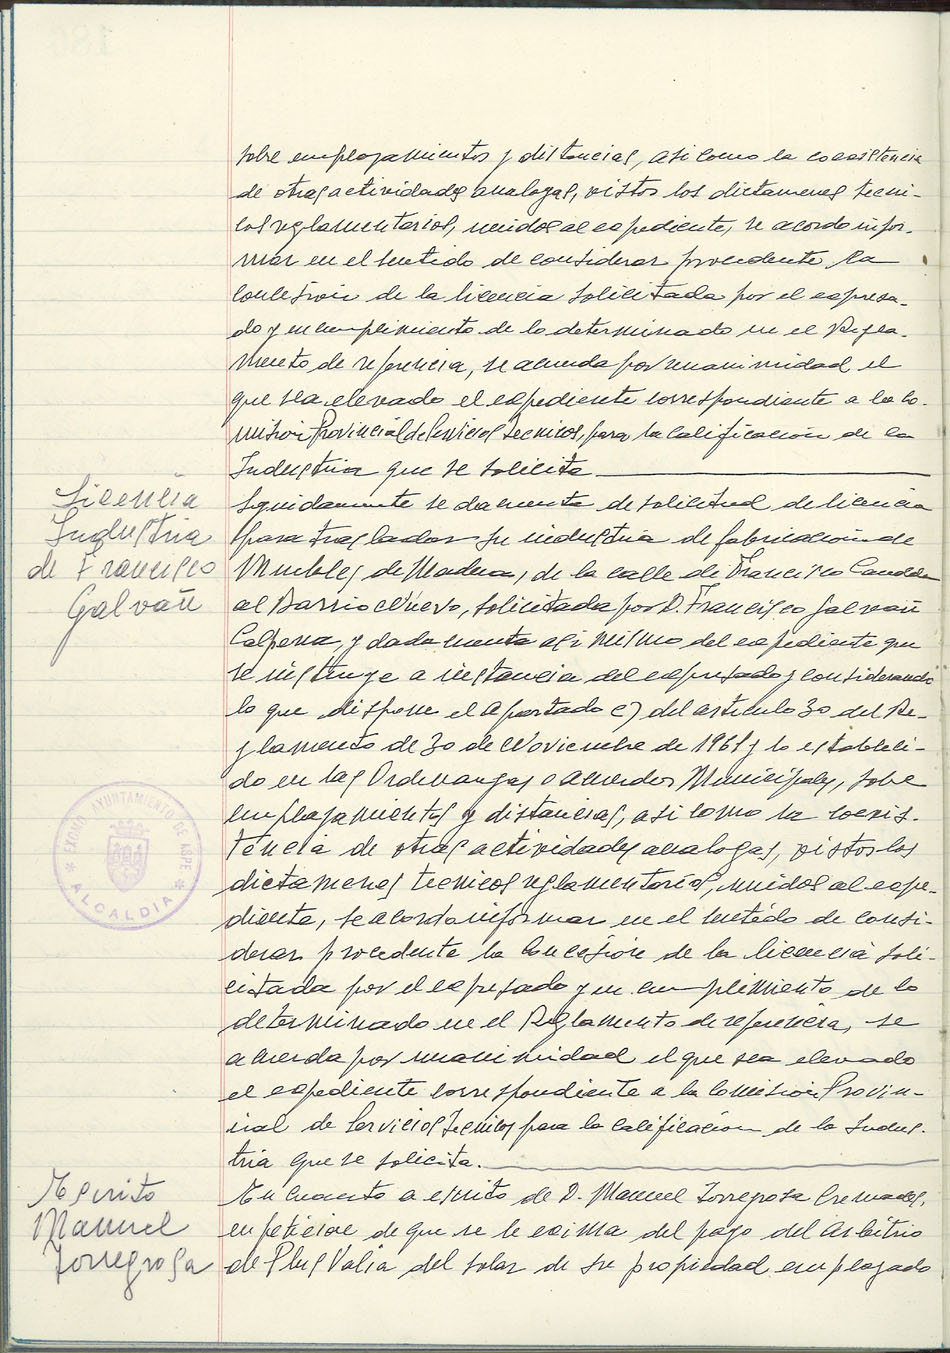 sobre emplazamientos y distancias, asi como la coexistencia
de otras actividades analogas, vistos los dictamenes tecni-
cos reglamentarios, unidos al expediente, se acordo infor-
mar en el sentido de considerar procedente la
concesion de la licencia solicitada por el expresa-
do y en cumplimiento de lo determinado en el Regla-
mento de referencia, se acuerda por unanimidad el
que sea elevado el expediente correspondiente a la Co-
mision Provincial de Servicios Tecnicos, para la calificacion de la
Industria que se solicita
Licencia
Industria
de Francisco
Galvañ
Seguidamente se da cuenta de solicitud de licencia
para trasladar su industria de fabricacion de
Muebles de Madera, de la calle de Francisco Candela
al Barrio Nuevo, solicitada por D. Francisco Galvañ
Calpena, y dada cuenta asi mismo del expediente que
se instruye a instancia del expresado y considerando
lo que dispone el apartado c) del articulo 30 del Re-
glamento de 30 de Noviembre de 1961 y lo estableci-
do en las Ordenanzas o acuerdos Municipales, sobre
emplazamientos y distancias, asi como la coexis-
tencia de otras actividades analogas, vistos los
dictamenes tecnicos reglamentarios, unidos al expe-
diente, se acordo informar en el sentido de consi-
derar procedente la concesión de la licencia soli-
citada por el expresado y en cumplimiento de lo
determinado en el Reglamento de referencia, se
acuerda por unanimidad el que sea elevado
el expediente correspondiente a la Comision Provin-
cial de Servicios Tecnicos para la calificacion de la Indus-
tria que se solicita.
EXCMO. AYUNTAMIENTO DE ASPE
* ALCALDIA *
Escrito
Manuel
Torregrosa
En cuanto a escrito de D. Manuel Torregrosa Cremades,
en peticion de que se le exima del pago del Arbitrio
de Plus Valia del solar de su propiedad emplazado